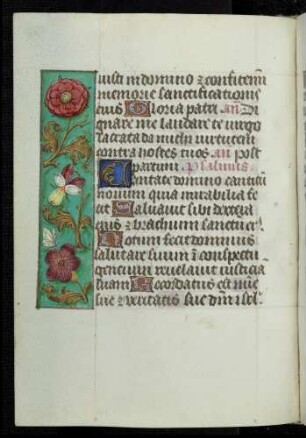 iusti in domino ⁊ confitemi
memorie sanctificationis
eius Gloria patri an̄. Di
gnare me laudare te virgo
sacrata da michi virtutem
contra hostes tuos an post
partum psalmus
Cantate domino canticū
novum quia mirabilia fe
cit Saluavit sibi dextera
eius ⁊ brachium sanctū eiꝰ
Notum fecit dominus
salutare suum ī conspectu
gencium revelavit iusticiā
suam Recordatus est mīe
sue ⁊ veritatis sue dm̄ isrl